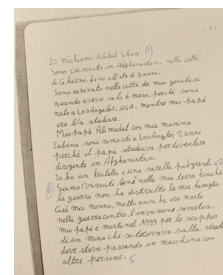 (1)
Io mi chiamo Abdul
Sono cresciuto in Afghanistan, nella città
di Ghazni, fino all'età di anni.
Sono arrivato nella città dei miei genitori
quando avevo solo 6 mesi, perché sono
nato a Los Angeles, USA, mentre mio papà
era là a studiare.
Mio papà Ali Madat con mia mamma
Zabina sono rimasti a Los Angeles 2 anni
perché il papà studiava per diventare
dirigente in Afghanistan.
Io ho un fratello e una sorella più grandi.
Siamo vissuti bene nella mia terra finché
la guerra non ha distrutto la mia famiglia
Già mio nonno, molti anni fa era morto
nella guerra contro l'invasione sovietica.
mio papà è morto nel 1999 per lo scoppio
di una mina che si trovava sulla strada
dove stava passando in macchina con
altre persone.